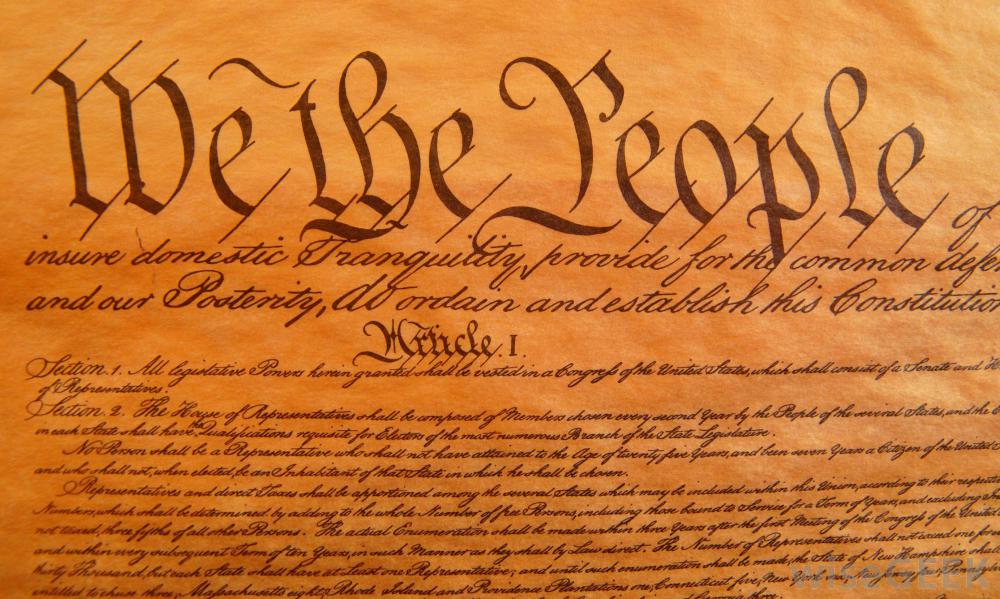 We the People of
insure domestic Tranquility, provide for the common defen
and our Posterity, do ordain and establish this Constitution
Article. I.
Section. 1. All legislative Powers herein granted shall be vested in a Congress of the United States, which shall consist of a Senate and H
of Representatives.
Section. 2. The House of Representatives shall be composed of Members chosen every second Year by the People of the several States, and the E
in each State shall have the Qualifications requisite for Electors of the most numerous Branch of the State Legislature.
No Person shall be a Representative who shall not have attained to the Age of twenty five Years, and been seven Years a Citizen of the United
and who shall not, when elected, be an Inhabitant of that State in which he shall be chosen.
Representatives and direct Taxes shall be apportioned among the several States which may be included within this Union, according to their respect
Numbers, which shall be determined by adding to the whole Number of free Persons, including those bound to Service for a Term of Years, and excluding
not taxed, three fifths of all other Persons. The actual Enumeration shall be made within three Years after the first Meeting of the Congress of the United
and within every subsequent Term of ten Years, in such Manner as they shall by Law direct. The Number of Representatives shall not exceed one for
thirty Thousand, but each State shall have at Least one Representative; and until such enumeration shall be made, the State of New Hampshire shall
entitled to chuse three, Massachusetts eight, Rhode Island and Providence Plantations one, Connecticut five, New York six, New Jersey four, Pennsylv
Georgia three.
wiseGEEK